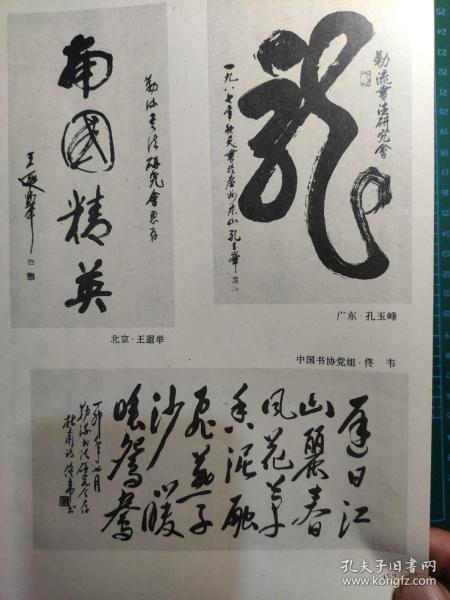 勒流書法研究會惠存
南國精英
王遐举
北京·王遐举
勒流書法研究會
龍
一九八七年秋天書於廣州東山孔玉峰
广东·孔玉峰
中国书协党组·佟 韦
遲日江
山麗春
风花草
香泥融
飛燕子
沙暖
睡鴛鴦
丁卯年七月
勒流书法研究会存
杜甫诗 佟韦书
孔夫子旧书网
www.kongfz.com